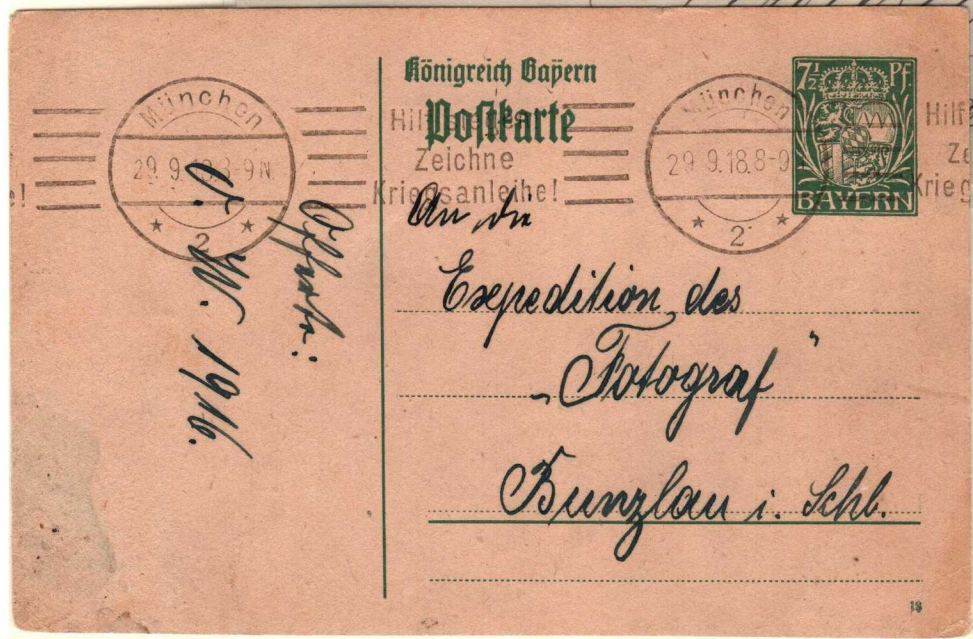 Königreich Bayern
Postkarte
7½ Pf
BAYERN
München
29.9.18.8-9 N.
* 2 *
Hilf
Zeichne
Kriegsanleihe!
e!
München
29.9.18.8-9
* 2 *
Hilf
Ze
Krieg
An die
Expedition des
„Fotograf"
Bunzlau i. Schl.
W. 1916.
18